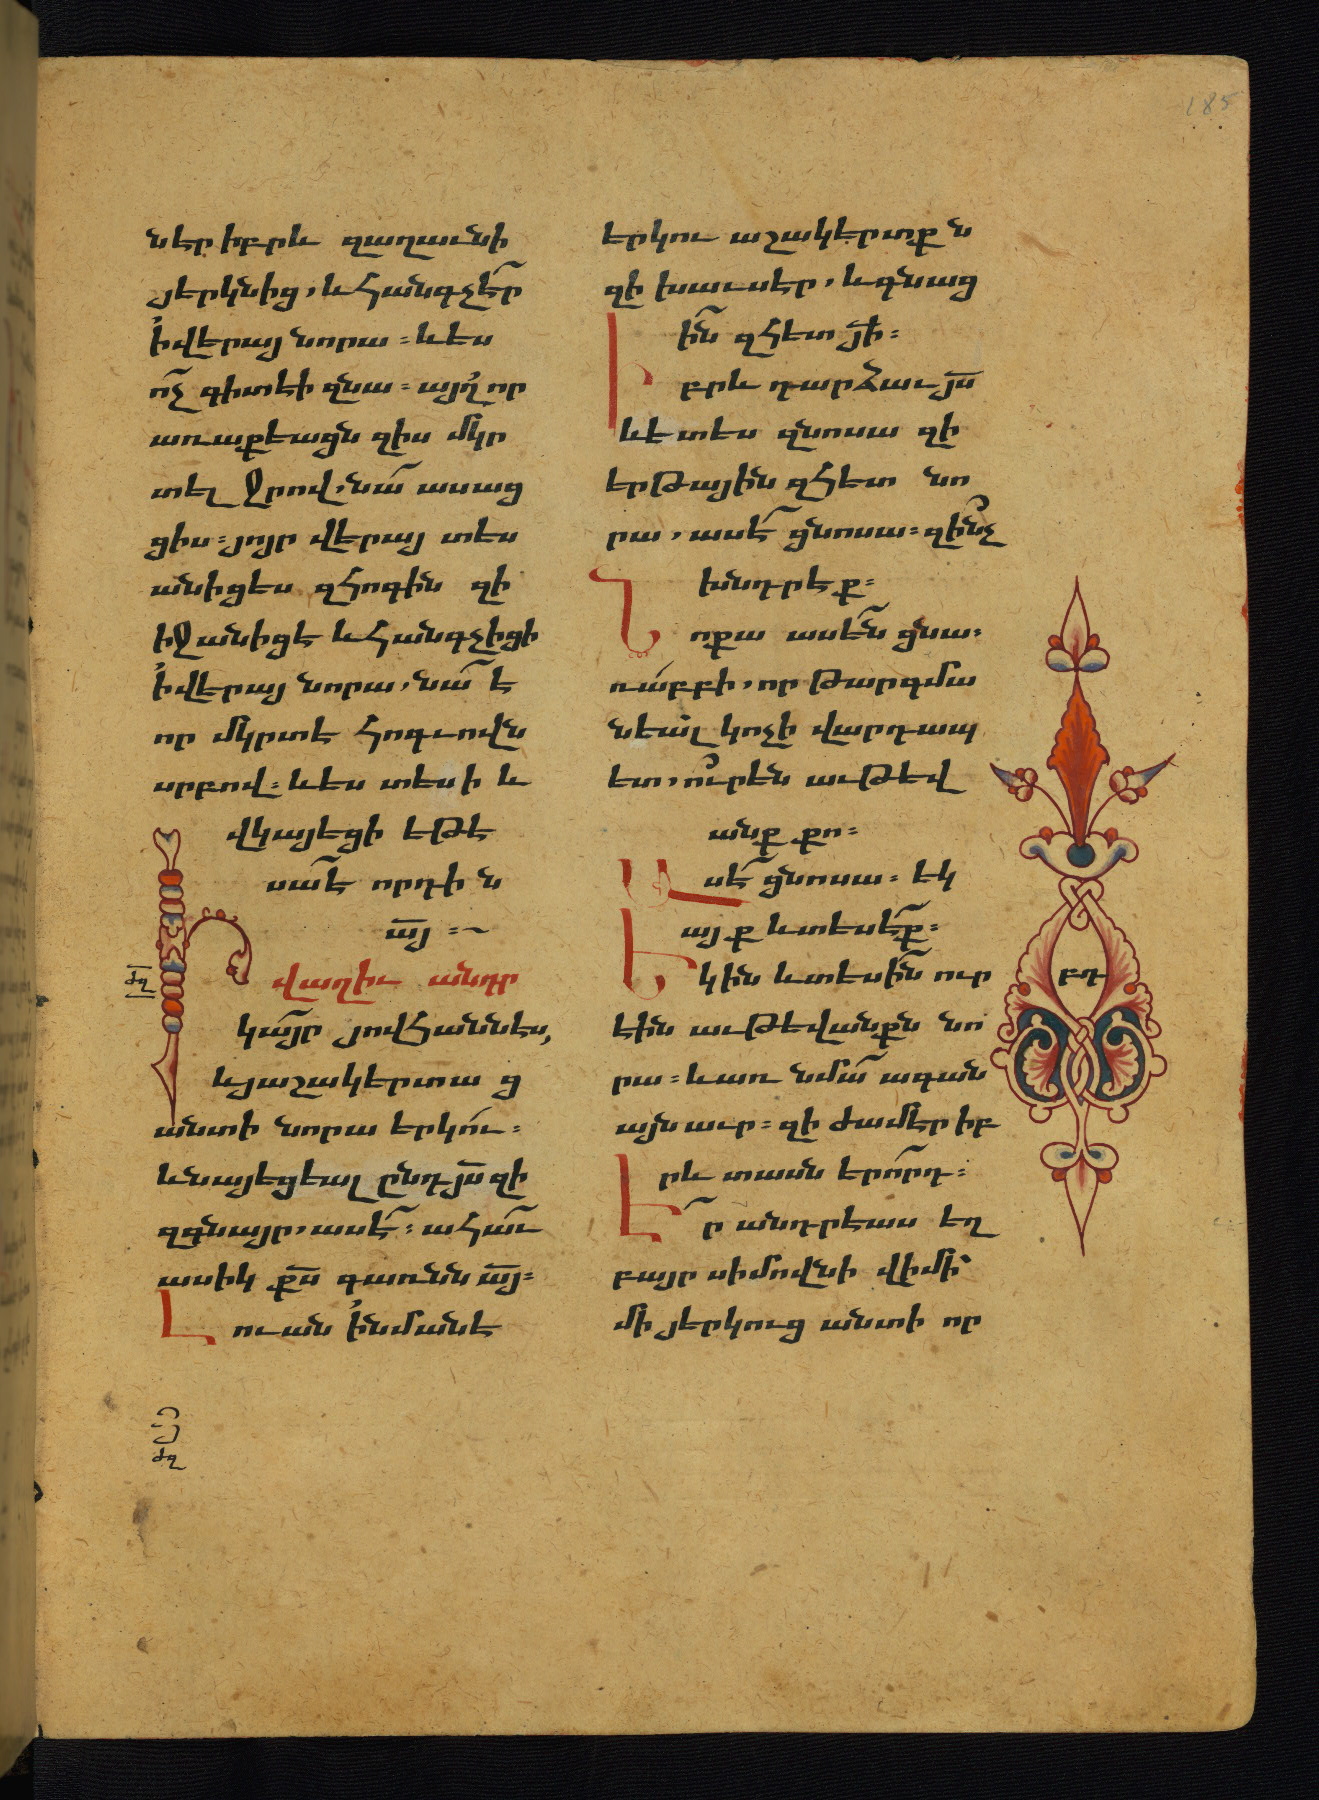 185
ներ իբրև զաղաւնի
յերկնից, և հանգչէ՜ր
ի վերայ նորա։ և ես
ո՜չ գիտէի զնա։ այլ որ
առաքեացն զիս մկր
տել ջրով, նա՜ ասաց
ցիս։ յոյր վերայ տես
անիցես զհոգին զի
իջանիցէ և հանգչիցի
ի վերայ նորա, նա՜ է
որ մկրտէ հոգւովն
սրբով։ և ես տեսի և
վկայեցի եթէ
սա՜ է որդի ն
ա՜յ։
Ի վաղիւ անդր
ժղ
կա՜յր յովհաննես,
և յաշակերտա ց
անտի նորա երկու։
և նայեցեալ ընդ յս՜ զի
զգնայր, ասէ՜։ ահա՜ւ
ասիկ ք՜ս գառնն ա՜յ։
Լուան ի նմանէ
ժղ
երկու աշակերտք ն
զի խաւսէր, և գնաց
ի՜ն զհետ յ՜ի։
Իբրև դարձաւ յ՜ս
և ետես զնոսա զի
երթային զհետ նո
րա, ասէ՜ ցնոսա։ զի՜նչ
խնդրէք։
Նոքա ասե՜ն ցնա։
ռաբբի, որ թարգմա
նեալ կոչի վարդապ
ետ, ուրեն աւթեվ
անք քո։
Ասէ՜ ցնոսա։ եկ
այք և տեսէ՜ք։
Եկին և տեսի՜ն ուր
էին աւթեվանքն նո
րա։ և առ նմա՜ ագան
այն աւր։ զի ժամէր իբ
րև տասն երո՜րդ։
Է՜ր անդրէաս եղ
բայր սիմովնի վիմի՜
մի յերկուց անտի որ
բդ